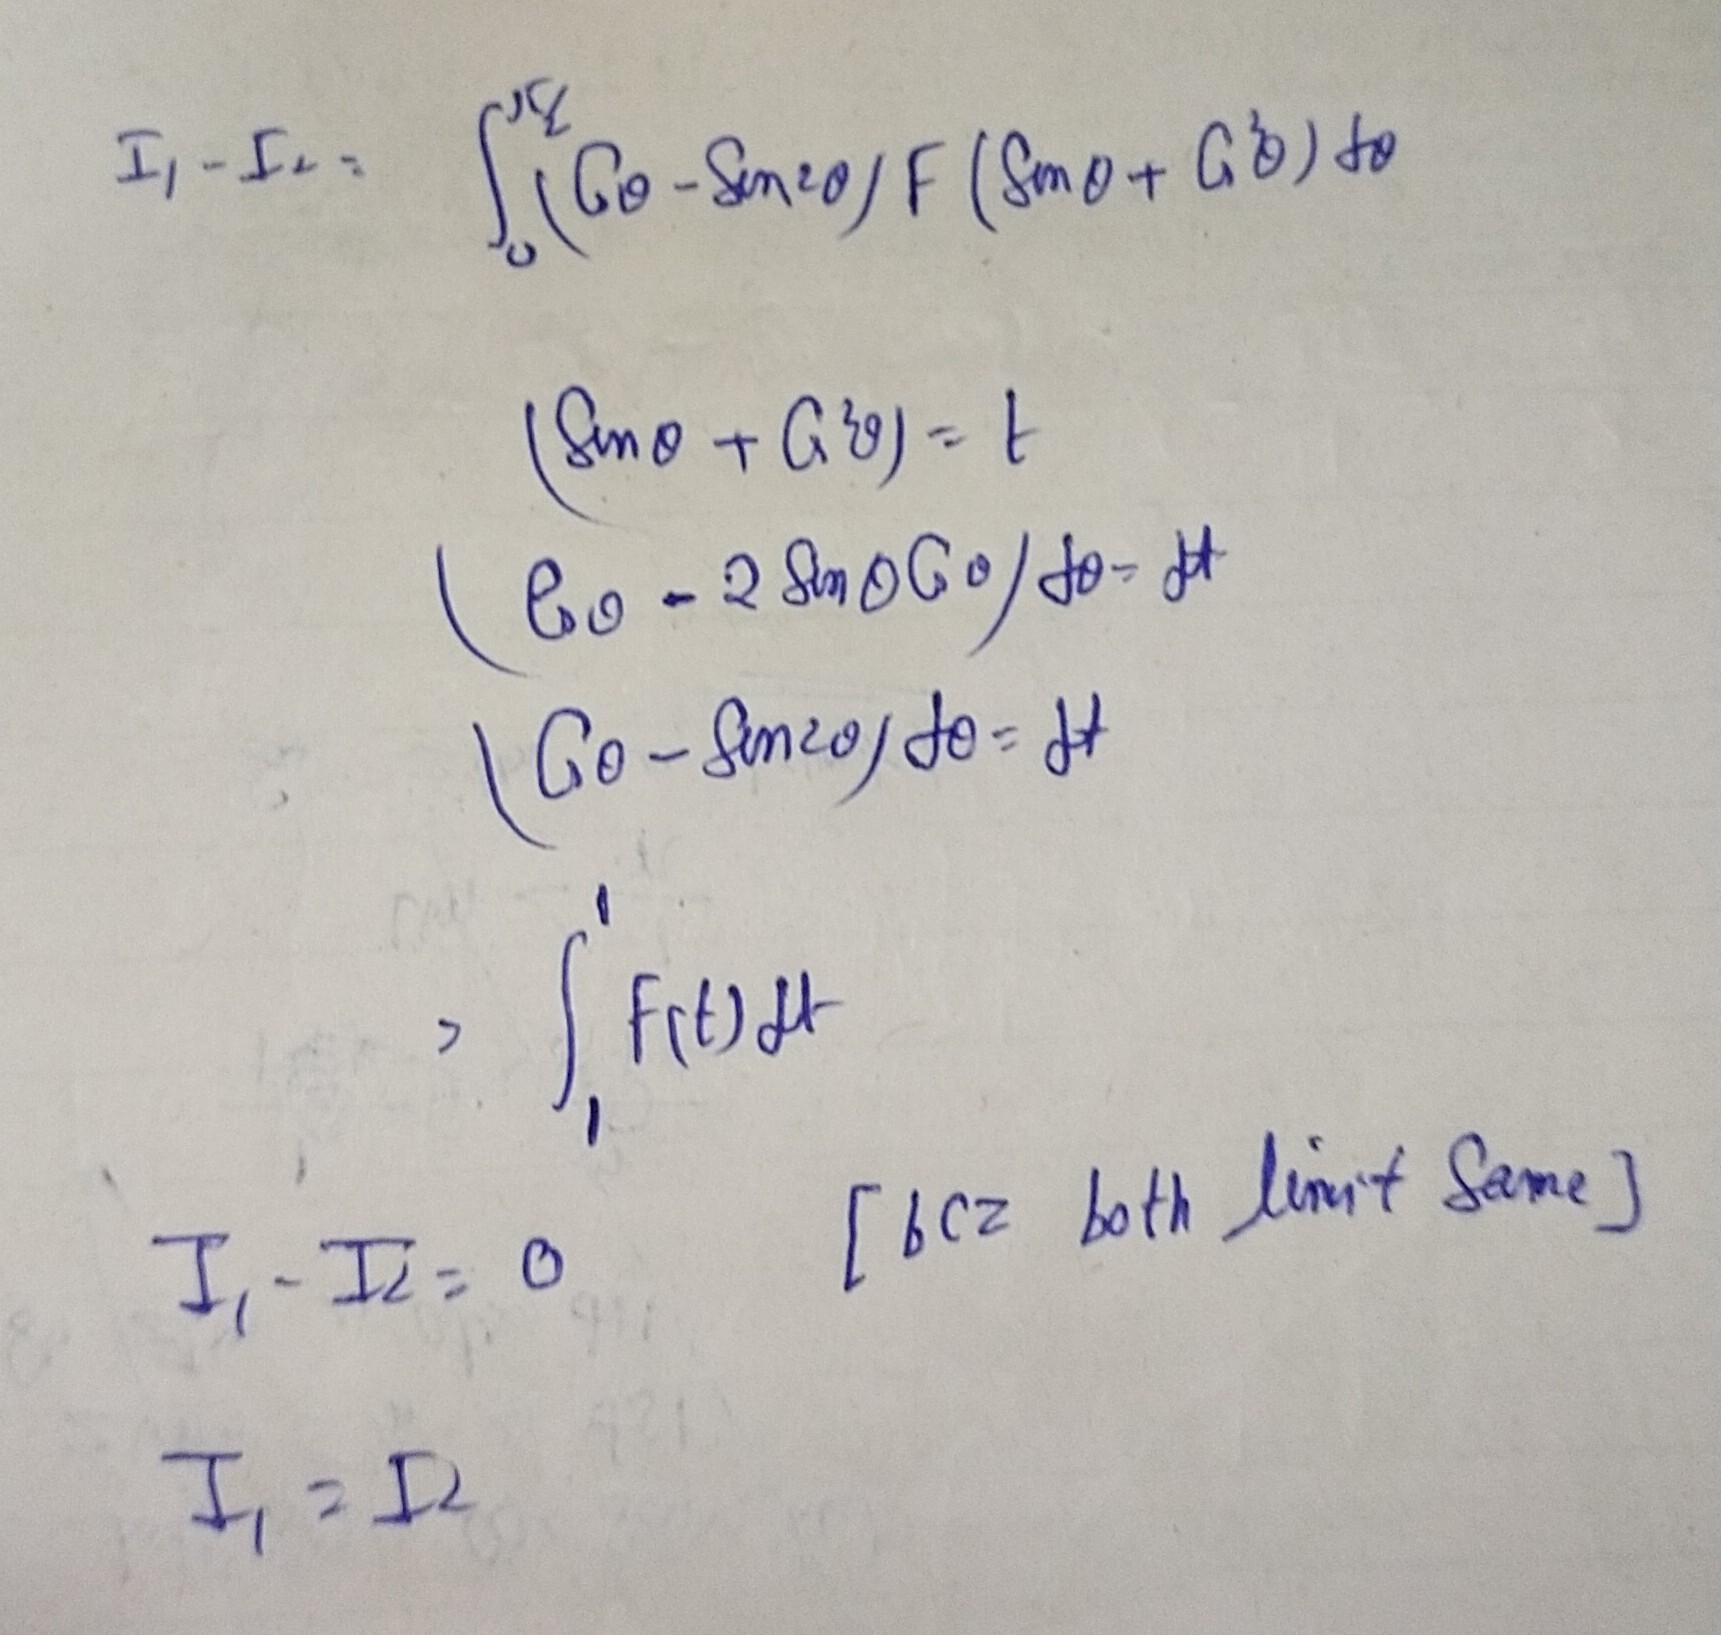 I₁ - I₂ = ∫₀^(π/2) (Cosθ - Sin2θ) F (Sinθ + Cos²θ) dθ
(Sinθ + Cos²θ) = t
(Cosθ - 2 Sinθ Cosθ) dθ = dt
(Cosθ - Sin2θ) dθ = dt
= ∫₁¹ F(t) dt
I₁ - I₂ = 0 [bcz both limit Same]
I₁ = I₂